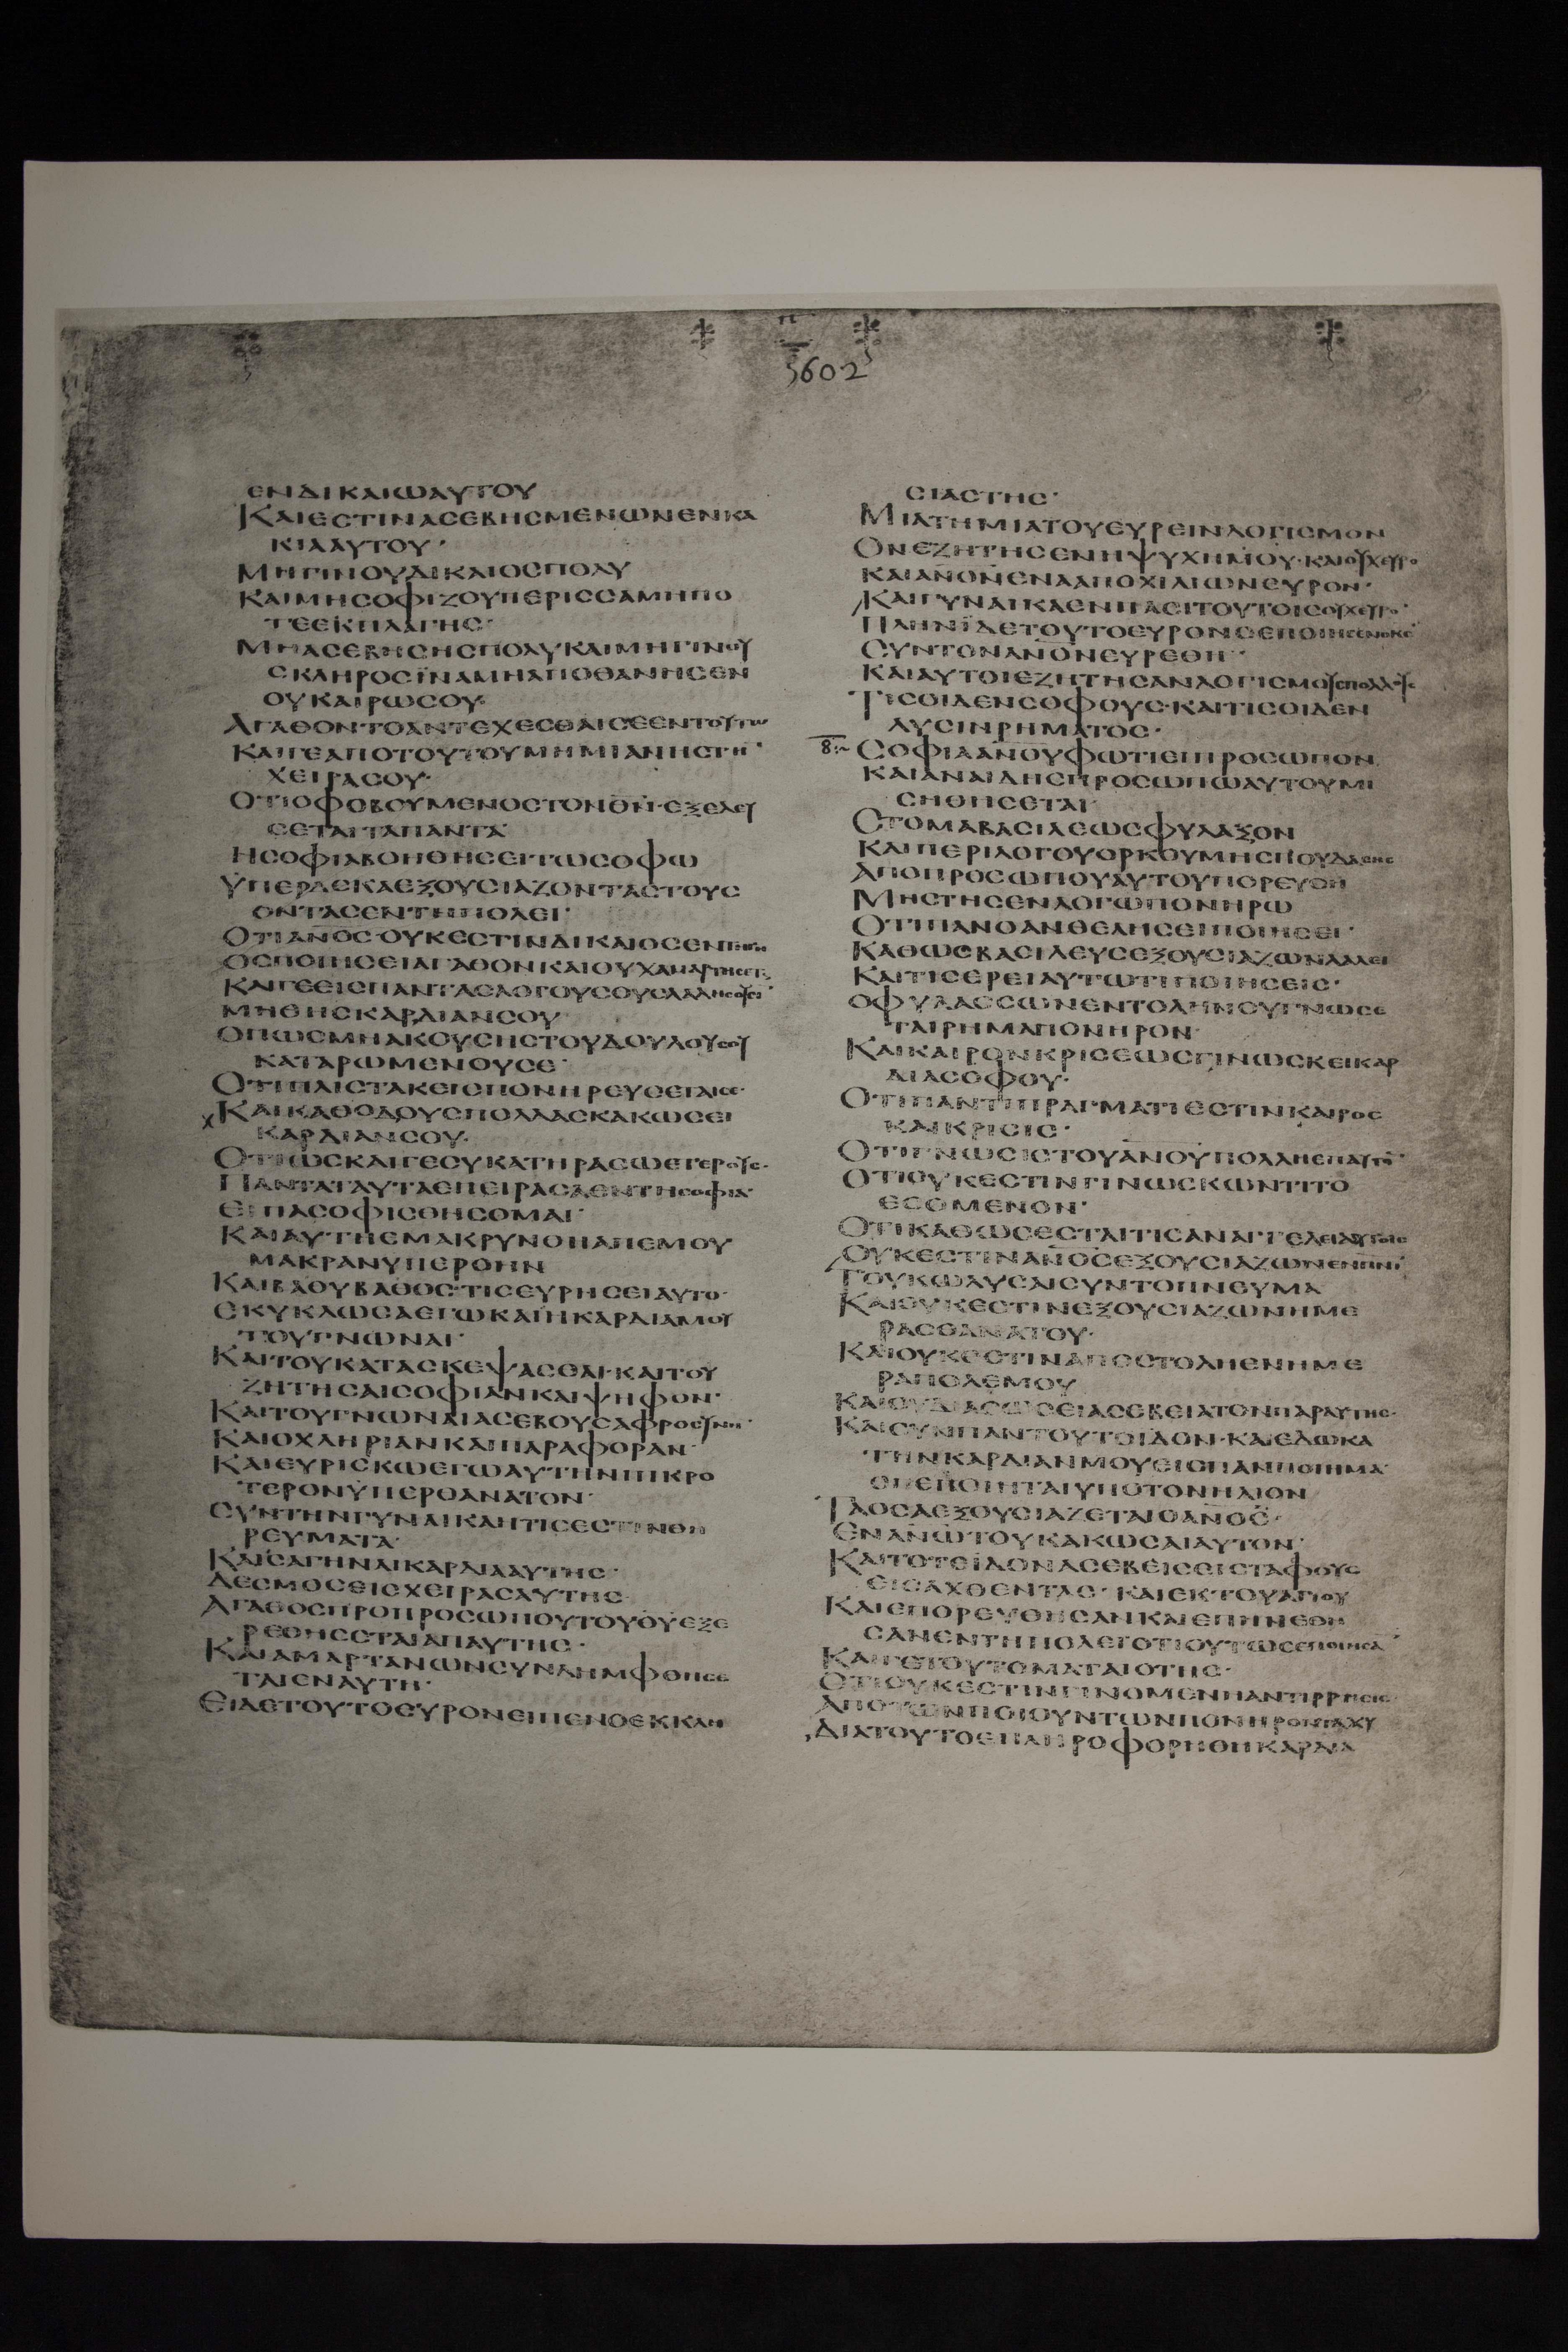 5602
ΕΝΔΙΚΑΙΩΑΥΤΟΥ
ΚΑΙΕΣΤΙΝΑΣΕΒΗΣΜΕΝΩΝΕΝΚΑ
ΚΙΑΑΥΤΟΥ·
ΜΗΓΙΝΟΥΔΙΚΑΙΟΣΠΟΛΥ
ΚΑΙΜΗΣΟΦΙΖΟΥΠΕΡΙΣΣΑΜΗΠΟ
ΤΕΕΚΠΛΑΓΗΣ·
ΜΗΑΣΕΒΗΣΗΣΠΟΛΥΚΑΙΜΗΓΙΝΟΥ
ΣΚΛΗΡΟΣΪΝΑΜΗΑΠΟΘΑΝΗΣΕΝ
ΟΥΚΑΙΡΩΣΟΥ·
ΑΓΑΘΟΝΤΟΑΝΤΕΧΕΣΘΑΙΣΕΕΝΤΟΥΤΩ
ΚΑΙΓΕΑΠΟΤΟΥΤΟΥΜΗΜΙΑΝΗΣΤΗ
ΧΕΙΡΑΣΟΥ·
ΟΤΙΟΦΟΒΟΥΜΕΝΟΣΤΟΝΘΝ·ΕΞΕΛΕΥ
ΣΕΤΑΙΤΑΠΑΝΤΑ
ΗΣΟΦΙΑΒΟΗΘΗΣΕΙΤΩΣΟΦΩ
ΥΠΕΡΔΕΚΑΕΞΟΥΣΙΑΖΟΝΤΑΣΤΟΥΣ
ΟΝΤΑΣΕΝΤΗΠΟΛΕΙ·
ΟΤΙΑΝΟΣ·ΟΥΚΕΣΤΙΝΔΙΚΑΙΟΣΕΝΤΗΓΗ
ΟΣΠΟΙΗΣΕΙΑΓΑΘΟΝΚΑΙΟΥΧΑΜΑΡΤΗΣΕΤΑΙ
ΚΑΙΓΕΕΙΣΠΑΝΤΑΣΛΟΓΟΥΣΟΥΣΛΑΛΗΣΟΥΣΙ
ΜΗΘΗΣΚΑΡΔΙΑΝΣΟΥ
ΟΠΩΣΜΗΑΚΟΥΣΗΣΤΟΥΔΟΥΛΟΥΣΟΥ
ΚΑΤΑΡΩΜΕΝΟΥΣΕ·
ΟΤΙΠΛΙΣΤΑΚΕΙΣΠΟΝΗΡΕΥΣΕΤΑΙΣΕ·
ΚΑΙΚΑΘΟΔΟΥΣΠΟΛΛΑΣΚΑΚΩΣΕΙ
ΚΑΡΔΙΑΝΣΟΥ·
ΟΤΙΩΣΚΑΙΓΕΣΥΚΑΤΗΡΑΣΩΕΤΕΡΟΥΣ·
ΠΑΝΤΑΤΑΥΤΑΕΠΕΙΡΑΣΑΕΝΤΗΣΟΦΙΑ
ΕΙΠΑΣΟΦΙΣΘΗΣΟΜΑΙ·
ΚΑΙΑΥΤΗΕΜΑΚΡΥΝΘΗΑΠΕΜΟΥ
ΜΑΚΡΑΝΥΠΕΡΟΗΝ
ΚΑΙΒΑΘΥΒΑΘΟΣ·ΤΙΣΕΥΡΗΣΕΙΑΥΤΟ·
ΕΚΥΚΛΩΣΑΕΓΩΚΑΙΗΚΑΡΔΙΑΜΟΥ
ΤΟΥΓΝΩΝΑΙ·
ΚΑΙΤΟΥΚΑΤΑΣΚΕΨΑΣΘΑΙ·ΚΑΙΤΟΥ
ΖΗΤΗΣΑΙΣΟΦΙΑΝΚΑΙΨΗΦΟΝ·
ΚΑΙΤΟΥΓΝΩΝΑΙΑΣΕΒΟΥΣΑΦΡΟΣΥΝΗΝ·
ΚΑΙΟΧΛΗΡΙΑΝΚΑΙΠΑΡΑΦΟΡΑΝ
ΚΑΙΕΥΡΙΣΚΩΕΓΩΑΥΤΗΝΠΙΚΡΟ
ΤΕΡΟΝΫΠΕΡΘΑΝΑΤΟΝ·
ΣΥΝΤΗΝΓΥΝΑΙΚΑΗΤΙΣΕΣΤΙΝΘΗ
ΡΕΥΜΑΤΑ·
ΚΑΙΣΑΓΗΝΑΙΚΑΡΔΙΑΑΥΤΗΣ·
ΔΕΣΜΟΣΕΙΣΧΕΙΡΑΣΑΥΤΗΣ
ΑΓΑΘΟΣΠΡΟΠΡΟΣΩΠΟΥΤΟΥΘΥΕΞΕ
ΡΕΘΗΣΕΤΑΙΑΠΑΥΤΗΣ·
ΚΑΙΑΜΑΡΤΑΝΩΝΣΥΝΛΗΜΦΘΗΣΕ
ΤΑΙΕΝΑΥΤΗ·
ΕΙΔΕΤΟΥΤΟΕΥΡΟΝΕΙΠΕΝΟΕΚΚΛΗ
ΣΙΑΣΤΗΣ·
ΜΙΑΤΗΜΙΑΤΟΥΕΥΡΕΙΝΛΟΓΙΣΜΟΝ
ΟΝΕΖΗΤΗΣΕΝΗΨΥΧΗΜΟΥ·ΚΑΙΟΥΧΕΥΡΟ
ΚΑΙΑΝΟΝΕΝΑΑΠΟΧΙΛΙΩΝΕΥΡΟΝ·
ΚΑΙΓΥΝΑΙΚΑΕΝΠΑΣΙΤΟΥΤΟΙΣΟΥΧΕΥΡΟ·
ΠΛΗΝΪΔΕΤΟΥΤΟΕΥΡΟΝΟΕΠΟΙΗΣΕΝΟΘΣ
ΣΥΝΤΟΝΑΝΟΝΕΥΡΕΘΗ·
ΚΑΙΑΥΤΟΙΕΖΗΤΗΣΑΝΛΟΓΙΣΜΟΥΣΠΟΛΛΟΥΣ
ΤΙΣΟΙΔΕΝΣΟΦΟΥΣ·ΚΑΙΤΙΣΟΙΔΕΝ
ΛΥΣΙΝΡΗΜΑΤΟΣ·
8 ΣΟΦΙΑΑΝΟΥΦΩΤΙΕΙΠΡΟΣΩΠΟΝ
ΚΑΙΑΝΑΙΔΗΣΠΡΟΣΩΠΩΑΥΤΟΥΜΙ
ΣΗΘΗΣΕΤΑΙ·
ΣΤΟΜΑΒΑΣΙΛΕΩΣΦΥΛΑΞΟΝ
ΚΑΙΠΕΡΙΛΟΓΟΥΟΡΚΟΥΜΗΣΠΟΥΔΑΣΗΣ
ΑΠΟΠΡΟΣΩΠΟΥΑΥΤΟΥΠΟΡΕΥΣΗ
ΜΗΣΤΗΣΕΝΛΟΓΩΠΟΝΗΡΩ
ΟΤΙΠΑΝΟΑΝΘΕΛΗΣΕΙΠΟΙΗΣΕΙ·
ΚΑΘΩΣΒΑΣΙΛΕΥΣΕΞΟΥΣΙΑΖΩΝΛΑΛΕΙ
ΚΑΙΤΙΣΕΡΕΙΑΥΤΩΤΙΠΟΙΗΣΕΙΣ·
ΟΦΥΛΑΣΣΩΝΕΝΤΟΛΗΝΟΥΓΝΩΣΕ
ΤΑΙΡΗΜΑΠΟΝΗΡΟΝ·
ΚΑΙΚΑΙΡΟΝΚΡΙΣΕΩΣΓΙΝΩΣΚΕΙΚΑΡ
ΔΙΑΣΟΦΟΥ·
ΟΤΙΠΑΝΤΙΠΡΑΓΜΑΤΙΕΣΤΙΝΚΑΙΡΟΣ
ΚΑΙΚΡΙΣΙΣ·
ΟΤΙΓΝΩΣΙΣΤΟΥΑΝΟΥΠΟΛΛΗΕΠΑΥΤΟ
ΟΤΙΟΥΚΕΣΤΙΝΓΙΝΩΣΚΩΝΤΙΤΟ
ΕΣΟΜΕΝΟΝ·
ΟΤΙΚΑΘΩΣΕΣΤΑΙΤΙΣΑΝΑΓΓΕΛΕΙΑΥΤΩ
ΟΥΚΕΣΤΙΝΑΝΟΣΕΞΟΥΣΙΑΖΩΝΕΝΠΝΙ
ΤΟΥΚΩΛΥΣΑΙΣΥΝΤΟΠΝΕΥΜΑ
ΚΑΙΟΥΚΕΣΤΙΝΕΞΟΥΣΙΑΖΩΝΗΜΕ
ΡΑΣΘΑΝΑΤΟΥ·
ΚΑΙΟΥΚΕΣΤΙΝΑΠΟΣΤΟΛΗΕΝΗΜΕ
ΡΑΠΟΛΕΜΟΥ
ΚΑΙΟΥΔΙΑΣΩΣΕΙΑΣΕΒΕΙΑΤΟΝΠΑΡΑΥΤΗΣ·
ΚΑΙΣΥΝΠΑΝΤΟΥΤΟΙΔΟΝ·ΚΑΙΕΔΩΚΑ
ΤΗΝΚΑΡΔΙΑΝΜΟΥΕΙΣΠΑΝΠΟΙΗΜΑ
ΟΠΕΠΟΙΗΤΑΙΥΠΟΤΟΝΗΛΙΟΝ
ΤΑΟΣΑΕΞΟΥΣΙΑΖΕΤΑΙΟΑΝΟΣ·
ΕΝΑΝΩΤΟΥΚΑΚΩΣΑΙΑΥΤΟΝ·
ΚΑΙΤΟΤΕΙΔΟΝΑΣΕΒΕΙΣΕΙΣΤΑΦΟΥΣ
ΕΙΣΑΧΘΕΝΤΑΣ·ΚΑΙΕΚΤΟΥΑΓΙΟΥ
ΚΑΙΕΠΟΡΕΥΘΗΣΑΝΚΑΙΕΠΗΝΕΘΗ
ΣΑΝΕΝΤΗΠΟΛΕΙΟΤΙΟΥΤΩΣΕΠΟΙΗΣΑ
ΚΑΙΓΕΤΟΥΤΟΜΑΤΑΙΟΤΗΣ·
ΟΤΙΟΥΚΕΣΤΙΝΓΙΝΟΜΕΝΗΑΝΤΙΡΡΗΣΙΣ
ΑΠΟΤΩΝΠΟΙΟΥΝΤΩΝΠΟΝΗΡΟΝΤΑΧΥ
ΔΙΑΤΟΥΤΟΕΠΛΗΡΟΦΟΡΗΘΗΚΑΡΔΙΑ